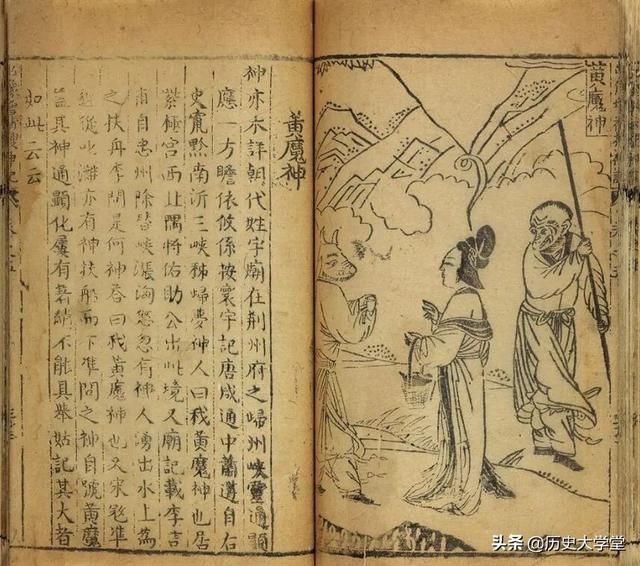 黃魔神
黃魔神
神亦未詳朝代姓字廟在荆州府之歸州峽靈通顯
應一方瞻依攸係按寰宇記唐咸通中蕭遘自右
史竄黔南泝三峽秭歸夢神人曰我黃魔神也居
紫極宫西北隅將佑助公出此境又廟記載李吉
甫自忠州除替峽漲洶怒忽有神人湧出水上為
之扶舟李問是何神答曰我黃魔神也又宋寇準
經從叱灘亦有神扶船而下準問之神自號黃魔
蓋其神通顯化屢有著績不能具舉姑記其大者
如此云云
头条 @历史大学堂